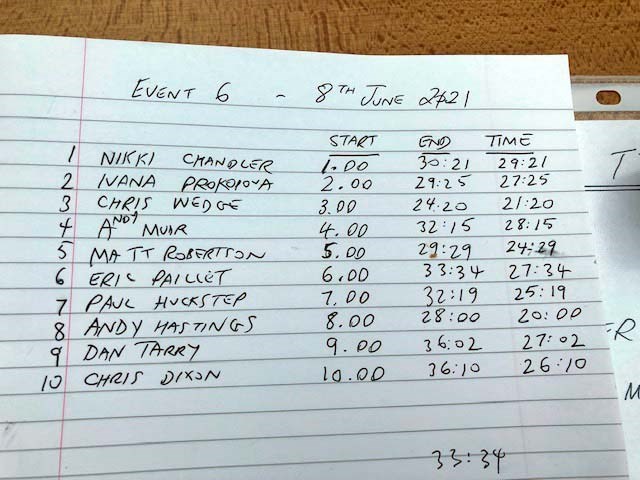 EVENT 6 - 8TH JUNE 2021
START END TIME
1 NIKKI CHANDLER 1.00 30:21 29:21
2 IVANA PROKOPOVA 2.00 29:25 27:25
3 CHRIS WEDGE 3.00 24:20 21:20
4 ANDY MUIR 4.00 32:15 28:15
5 MATT ROBERTSON 5.00 29:29 24:29
6 ERIC PAILLET 6.00 33:34 27:34
7 PAUL HUCKSTEP 7.00 32:19 25:19
8 ANDY HASTINGS 8.00 28:00 20:00
9 DAN TARRY 9.00 36:02 27:02
10 CHRIS DIXON 10.00 36:10 26:10
33:34
T
ER
M